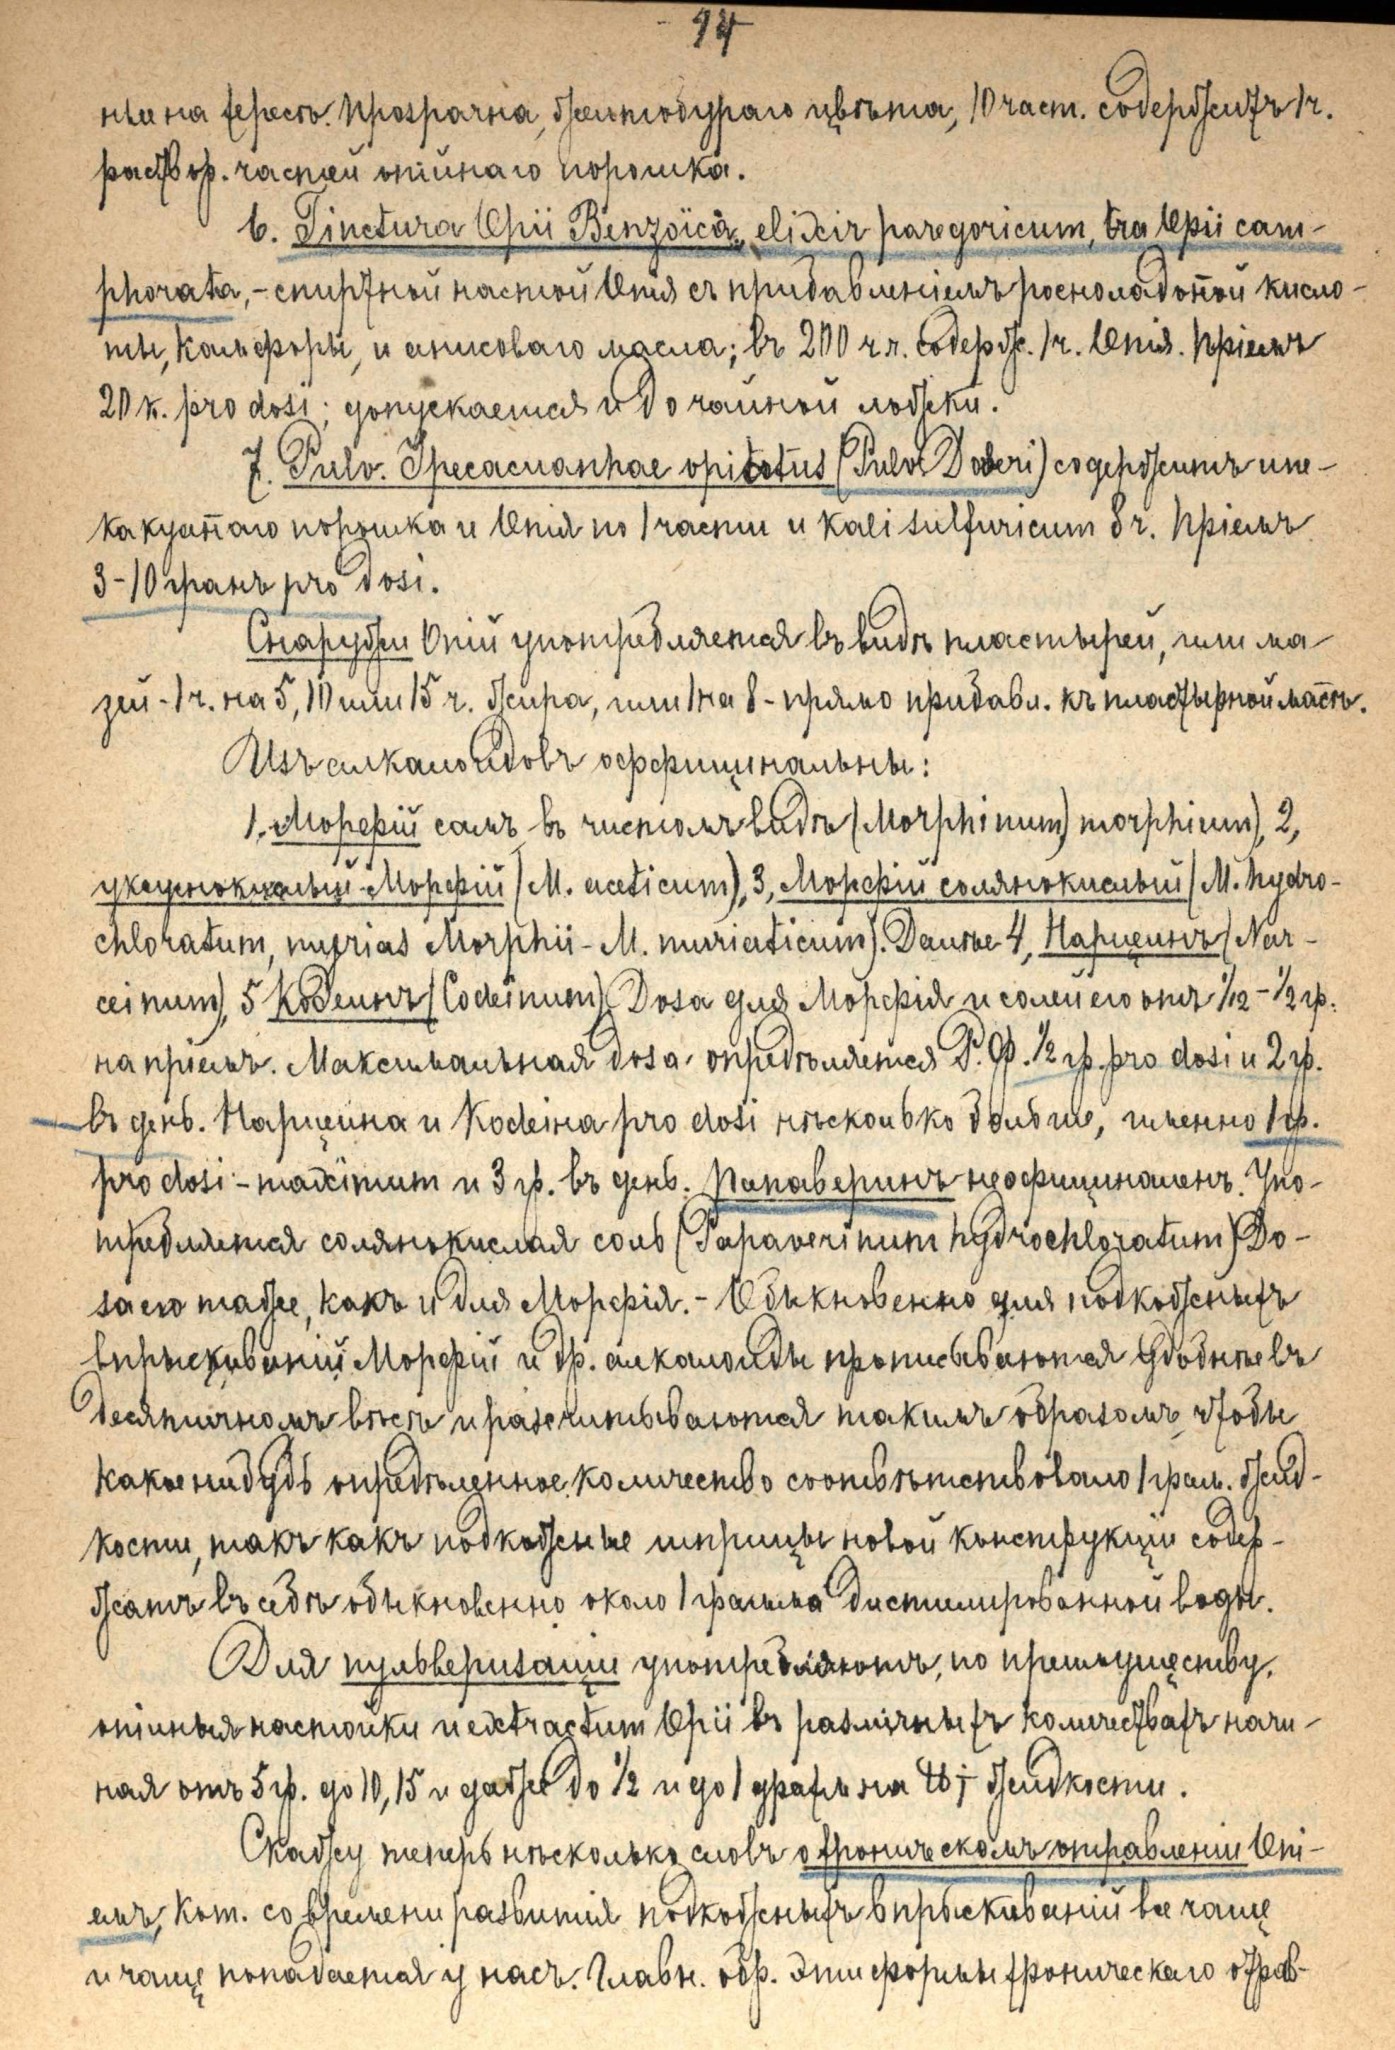 94
нье на хересъ. Прозрачна, желтобураго цвѣта, 10 част. содержитъ 1 ч.
раствор. частей опійнаго порошка.
6. Tinctura Opii Benzoïca, elixir paregoricum, tra Opii cam-
phorata, - спиртной настой Опія съ прибавленіемъ росноладонной кисло-
ты, камфоры, и анисоваго масла; въ 200 ч. содерж. 1 ч. Опія. Пріемъ
20 к. pro dosi; допускается и до чайной ложки.
7. Pulv. Ipecacuanhae opiatus (Pulv. Doveri) содержитъ ипе-
какуан̄аго порошка и Опія по 1 части и Kali sulfuricum 8 ч. Пріемъ
3-10 гранъ pro dosi.
Снаружи Опій употребляется въ видѣ пластырей, или ма
зей - 1 ч. на 5, 10 или 15 ч. жира, или 1 на 8 - прямо прибавл. къ пластырной массѣ.
Изъ алкалоидовъ оффицинальны:
1. Морфій самъ въ чистомъ видѣ (Morphinum, morphium), 2,
уксуснокислый Морфій (M. aceticum), 3, Морфій солянокислый (M. hydro-
chloratum, murias Morphii - M. muriaticum). Далѣе 4, Нарцеинъ (Nar-
ceinum), 5 Кодеинъ (Codeinum). Doza для Морфія и солей его отъ 1/12 - 1/2 гр.
на пріемъ. Максимальная doza опредѣляется Р. Ф. 1/2 гр. pro dosi и 2 гр.
въ день. Нарцеина и Kodeiна pro dosi нѣсколько больше, именно 1 гр.
pro dosi - maximum и 3 гр. въ день. Папаверинъ неофициналенъ. Упо-
требляется солянокислая соль (Papaverinum hydrochloratum) До-
за его таже, какъ и для Морфія. - Обыкновенно для подкожныхъ
впрыскиваній Морфій и др. алкалоиды прописываются удобнѣе въ
десятичномъ вѣсѣ и разсчитываются такимъ образомъ, чтобы
какое нибудь опредѣленное количество соотвѣтствовало 1 грам. жид-
кости, такъ какъ подкожные шприцы новой конструкціи содер-
жатъ въ себѣ обыкновенно около 1 грамма дистиллированной воды.
Для пульверизаціи употребляютъ, по преимуществу,
опійныя настойки и extractum Opii въ различныхъ количествахъ начи-
ная отъ 5 гр. до 10, 15 и даже до 1/2 и до 1 драхм на ℔j жидкости.
Скажу теперь нѣсколько словъ о хроническомъ отравленіи Опі-
емъ, кот. со времени развитія подкожныхъ впрыскиваній все чаще
и чаще попадается у насъ. Главн. обр. эти формы хроническаго отрав-